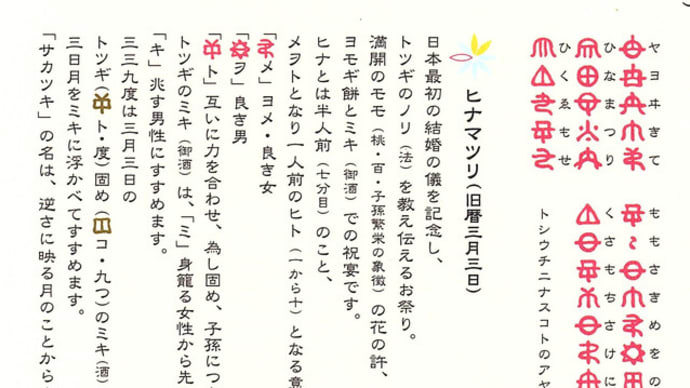 ヤヨヰきて
ももさきめをの
ひなまつり
くさもちさけに
ひくゑもせ
トシウチニナスコトのアヤ
ヒナマツリ(旧暦三月三日)
日本最初の結婚の儀を記念し、
トツギのノリ(法)を教え伝えるお祭り。
満開のモモ(桃・百・子孫繁栄の象徴)の花の許、
ヨモギ餅とミキ(御酒)での祝宴です。
ヒナとは半人前(七分目)のこと、
メヲトとなり一人前のヒト(一から十)となる意
「メ」ヨメ・良き女
「ヲ」良き男
「ト」互いに力を合わせ、為し固め、子孫につ
トツギのミキ(御酒)は、「ミ」身籠る女性から先
「キ」兆す男性にすすめます。
三三九度は三月三日の
トツギ(ト・度)固め(コ・九つ)のミキ(酒)
三日月をミキに浮かべてすすめます。
「サカツキ」の名は、逆さに映る月のことから